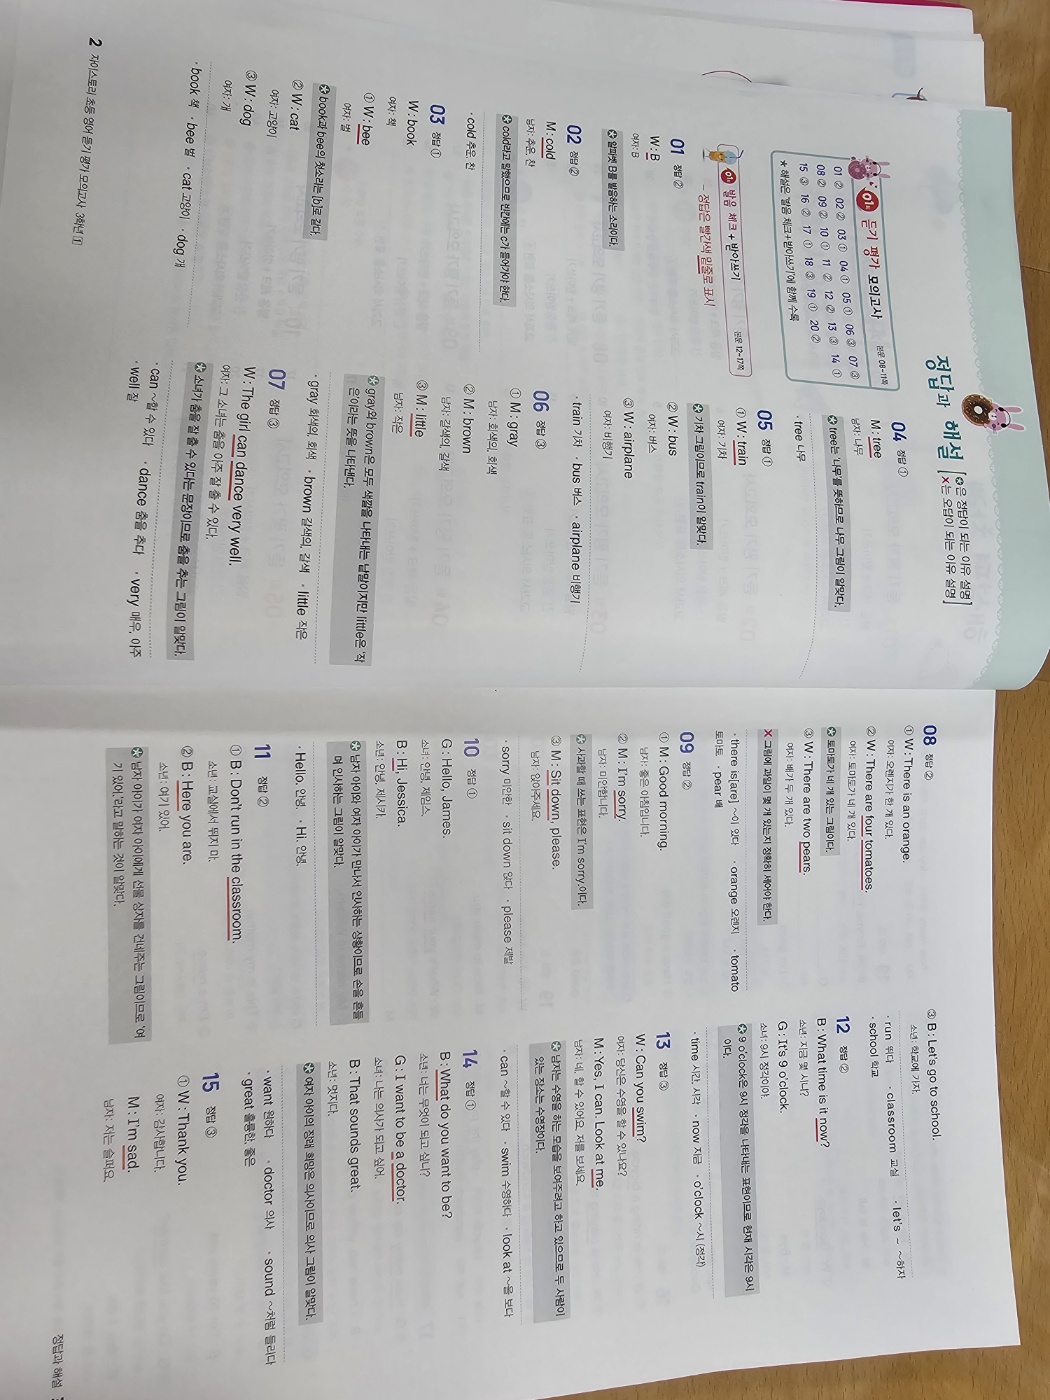 정답과 해설
✪은 정답이 되는 이유 설명
X는 오답이 되는 이유 설명
01회 듣기 평가 모의고사 본문 08~11쪽
01 ② 02 ② 03 ① 04 ① 05 ① 06 ③ 07 ③
08 ② 09 ② 10 ① 11 ② 12 ② 13 ③ 14 ①
15 ③ 16 ② 17 ① 18 ③ 19 ① 20 ②
★해설은 '발음 체크+받아쓰기'에 함께 수록
01회 발음 체크 + 받아쓰기 본문 12~17쪽
– 정답은 빨간색 밑줄로 표시
01 정답 ②
W : B
여자: B
✪ 알파벳 B를 발음하는 소리이다.
02 정답 ②
M : cold
남자: 추운, 찬
✪ cold라고 말했으므로 빈칸에는 c가 들어가야 한다.
· cold 추운, 찬
03 정답 ①
W : book
여자: 책
① W : bee
여자: 벌
✪ book과 bee의 첫소리는 [b]로 같다.
② W : cat
여자: 고양이
③ W : dog
여자: 개
· book 책 · bee 벌 · cat 고양이 · dog 개
04 정답 ①
M : tree
남자: 나무
✪ tree는 '나무'를 뜻하므로 나무 그림이 알맞다.
· tree 나무
05 정답 ①
① W : train
여자: 기차
✪ 기차 그림이므로 train이 알맞다.
② W : bus
여자: 버스
③ W : airplane
여자: 비행기
· train 기차 · bus 버스 · airplane 비행기
06 정답 ③
① M : gray
남자: 회색의, 회색
② M : brown
남자: 갈색의, 갈색
③ M : little
남자: 작은
✪ gray와 brown은 모두 색깔을 나타내는 낱말이지만 little은 '작
은'이라는 뜻을 나타낸다.
· gray 회색의, 회색 · brown 갈색의, 갈색 · little 작은
07 정답 ③
W : The girl can dance very well.
여자: 그 소녀는 춤을 아주 잘 출 수 있다.
✪ 소녀가 춤을 잘 출 수 있다는 문장이므로 춤을 추는 그림이 알맞다.
· can ~할 수 있다 · dance 춤을 추다 · very 매우, 아주
· well 잘
2 자이스토리 초등 영어 듣기 평가 모의고사 3학년 ①
08 정답 ②
① W : There is an orange.
여자: 오렌지가 한 개 있다.
② W : There are four tomatoes.
여자: 토마토가 네 개 있다.
✪ 토마토가 네 개 있는 그림이다.
③ W : There are two pears.
여자: 배가 두 개 있다.
X 그림에 과일이 몇 개 있는지 정확히 세어야 한다.
· there is[are] ~이 있다 · orange 오렌지 · tomato
토마토 · pear 배
09 정답 ②
① M : Good morning.
남자: 좋은 아침입니다.
② M : I'm sorry.
남자: 미안합니다.
✪ 사과할 때 쓰는 표현은 I'm sorry.이다.
③ M : Sit down, please.
남자: 앉아주세요.
· sorry 미안한 · sit down 앉다 · please 제발
10 정답 ①
G : Hello, James.
소녀: 안녕, 제임스.
B : Hi, Jessica.
소년: 안녕, 제시카.
✪ 남자 아이와 여자 아이가 만나서 인사하는 상황이므로 손을 흔들
며 인사하는 그림이 알맞다.
· Hello. 안녕. · Hi. 안녕.
11 정답 ②
① B : Don't run in the classroom.
소년: 교실에서 뛰지 마.
② B : Here you are.
소년: 여기 있어.
✪ 남자 아이가 여자 아이에게 선물 상자를 건네주는 그림이므로 '여
기 있어.'라고 말하는 것이 알맞다.
③ B : Let's go to school.
소년: 학교에 가자.
· run 뛰다 · classroom 교실 · let's ~ ~하자
· school 학교
12 정답 ②
B : What time is it now?
소년: 지금 몇 시니?
G : It's 9 o'clock.
소녀: 9시 정각이야.
✪ 9 o'clock은 9시 정각을 나타내는 표현이므로 현재 시각은 9시
이다.
· time 시간, 시각 · now 지금 · o'clock ~시 (정각)
13 정답 ③
W : Can you swim?
여자: 당신은 수영을 할 수 있나요?
M : Yes, I can. Look at me.
남자: 네, 할 수 있어요. 저를 보세요.
✪ 남자는 수영을 하는 모습을 보여주려고 하고 있으므로 두 사람이
있는 장소는 수영장이다.
· can ~할 수 있다 · swim 수영하다 · look at ~을 보다
14 정답 ①
B : What do you want to be?
소년: 너는 무엇이 되고 싶니?
G : I want to be a doctor.
소녀: 나는 의사가 되고 싶어.
B : That sounds great.
소년: 멋지다.
✪ 여자 아이의 장래 희망은 의사이므로 의사 그림이 알맞다.
· want 원하다 · doctor 의사 · sound ~처럼 들리다
· great 훌륭한, 좋은
15 정답 ③
① W : Thank you.
여자: 감사합니다.
M : I'm sad.
남자: 저는 슬퍼요.
정답과 해설